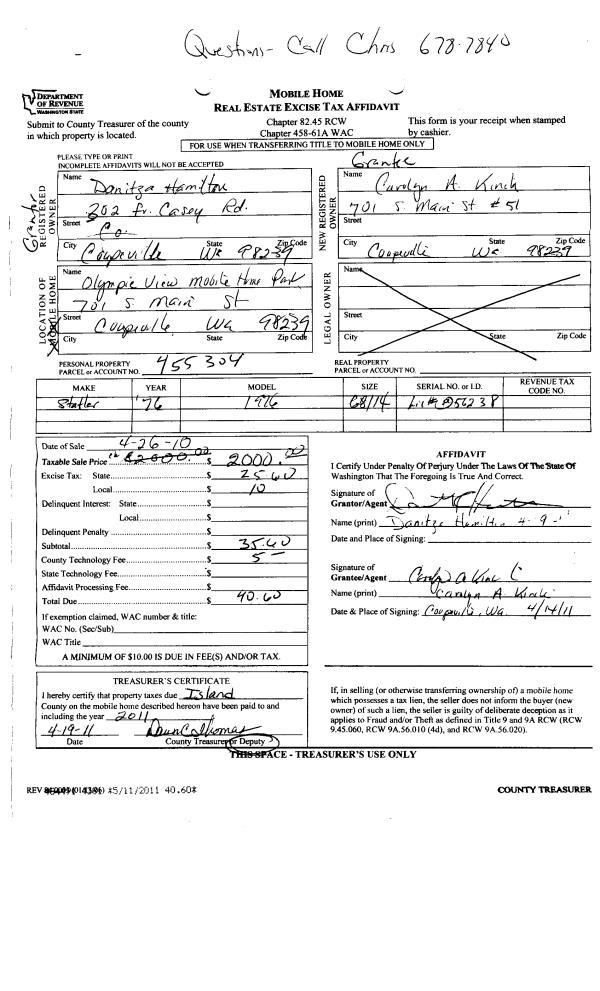 Questions - Call Chris 678-7840
DEPARTMENT
OF REVENUE
WASHINGTON STATE
MOBILE HOME
REAL ESTATE EXCISE TAX AFFIDAVIT
Submit to County Treasurer of the county
in which property is located.
Chapter 82.45 RCW
Chapter 458-61A WAC
This form is your receipt when stamped
by cashier.
FOR USE WHEN TRANSFERRING TITLE TO MOBILE HOME ONLY
PLEASE TYPE OR PRINT
INCOMPLETE AFFIDAVITS WILL NOT BE ACCEPTED
REGISTERED OWNER
Name Danitza Hamilton
202 Fr. Casey Rd.
Street Co.
City Coupeville State Wa Zip Code 98239
NEW REGISTERED OWNER
Name Carolyn A. Kinch
701 S. Main St #51
Street
City Coupeville State Wa Zip Code 98239
LOCATION OF MOBILE HOME
Name Olympic View Mobile Home Park
701 S. Main St
Street Coupeville, Wa 98239
City State Zip Code
LEGAL OWNER
Name
Street
City State Zip Code
PERSONAL PROPERTY
PARCEL or ACCOUNT NO. 455304
REAL PROPERTY
PARCEL or ACCOUNT NO.
MAKE YEAR MODEL SIZE SERIAL NO. or I.D. REVENUE TAX CODE NO.
Statler '76 1976 68/14
Date of Sale 4-26-10
Taxable Sale Price $ 2000.00
Excise Tax: State $ 25.60
Local $ 10
Delinquent Interest: State $
Local $
Delinquent Penalty $
Subtotal $ 35.60
County Technology Fee $ 5-
State Technology Fee $
Affidavit Processing Fee $
Total Due $ 40.60
If exemption claimed, WAC number & title:
WAC No. (Sec/Sub)
WAC Title
A MINIMUM OF $10.00 IS DUE IN FEE(S) AND/OR TAX.
AFFIDAVIT
I Certify Under Penalty Of Perjury Under The Laws Of The State Of
Washington That The Foregoing Is True And Correct.
Signature of
Grantor/Agent
Name (print) Danitza Hamilton 4-9-
Date and Place of Signing:
Signature of
Grantee/Agent Carolyn A Kinch
Name (print) Carolyn A. Kinch
Date & Place of Signing: Coupeville, Wa. 4/14/11
TREASURER'S CERTIFICATE
I hereby certify that property taxes due Island
County on the mobile home described hereon have been paid to and
including the year 2011
4-19-11
Date County Treasurer or Deputy
If, in selling (or otherwise transferring ownership of) a mobile home
which possesses a tax lien, the seller does not inform the buyer (new
owner) of such a lien, the seller is guilty of deliberate deception as it
applies to Fraud and/or Theft as defined in Title 9 and 9A RCW (RCW
9.45.060, RCW 9A.56.010 (4d), and RCW 9A.56.020).
THIS SPACE - TREASURER'S USE ONLY
REV #5/11/2011 40.60#
COUNTY TREASURER